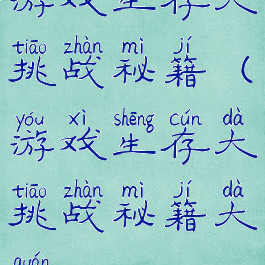 游戏生存大
tiāo zhàn mì jí
挑战秘籍（
yóu xì shēng cún dà
游戏生存大
tiāo zhàn mì jí dà
挑战秘籍大
quán